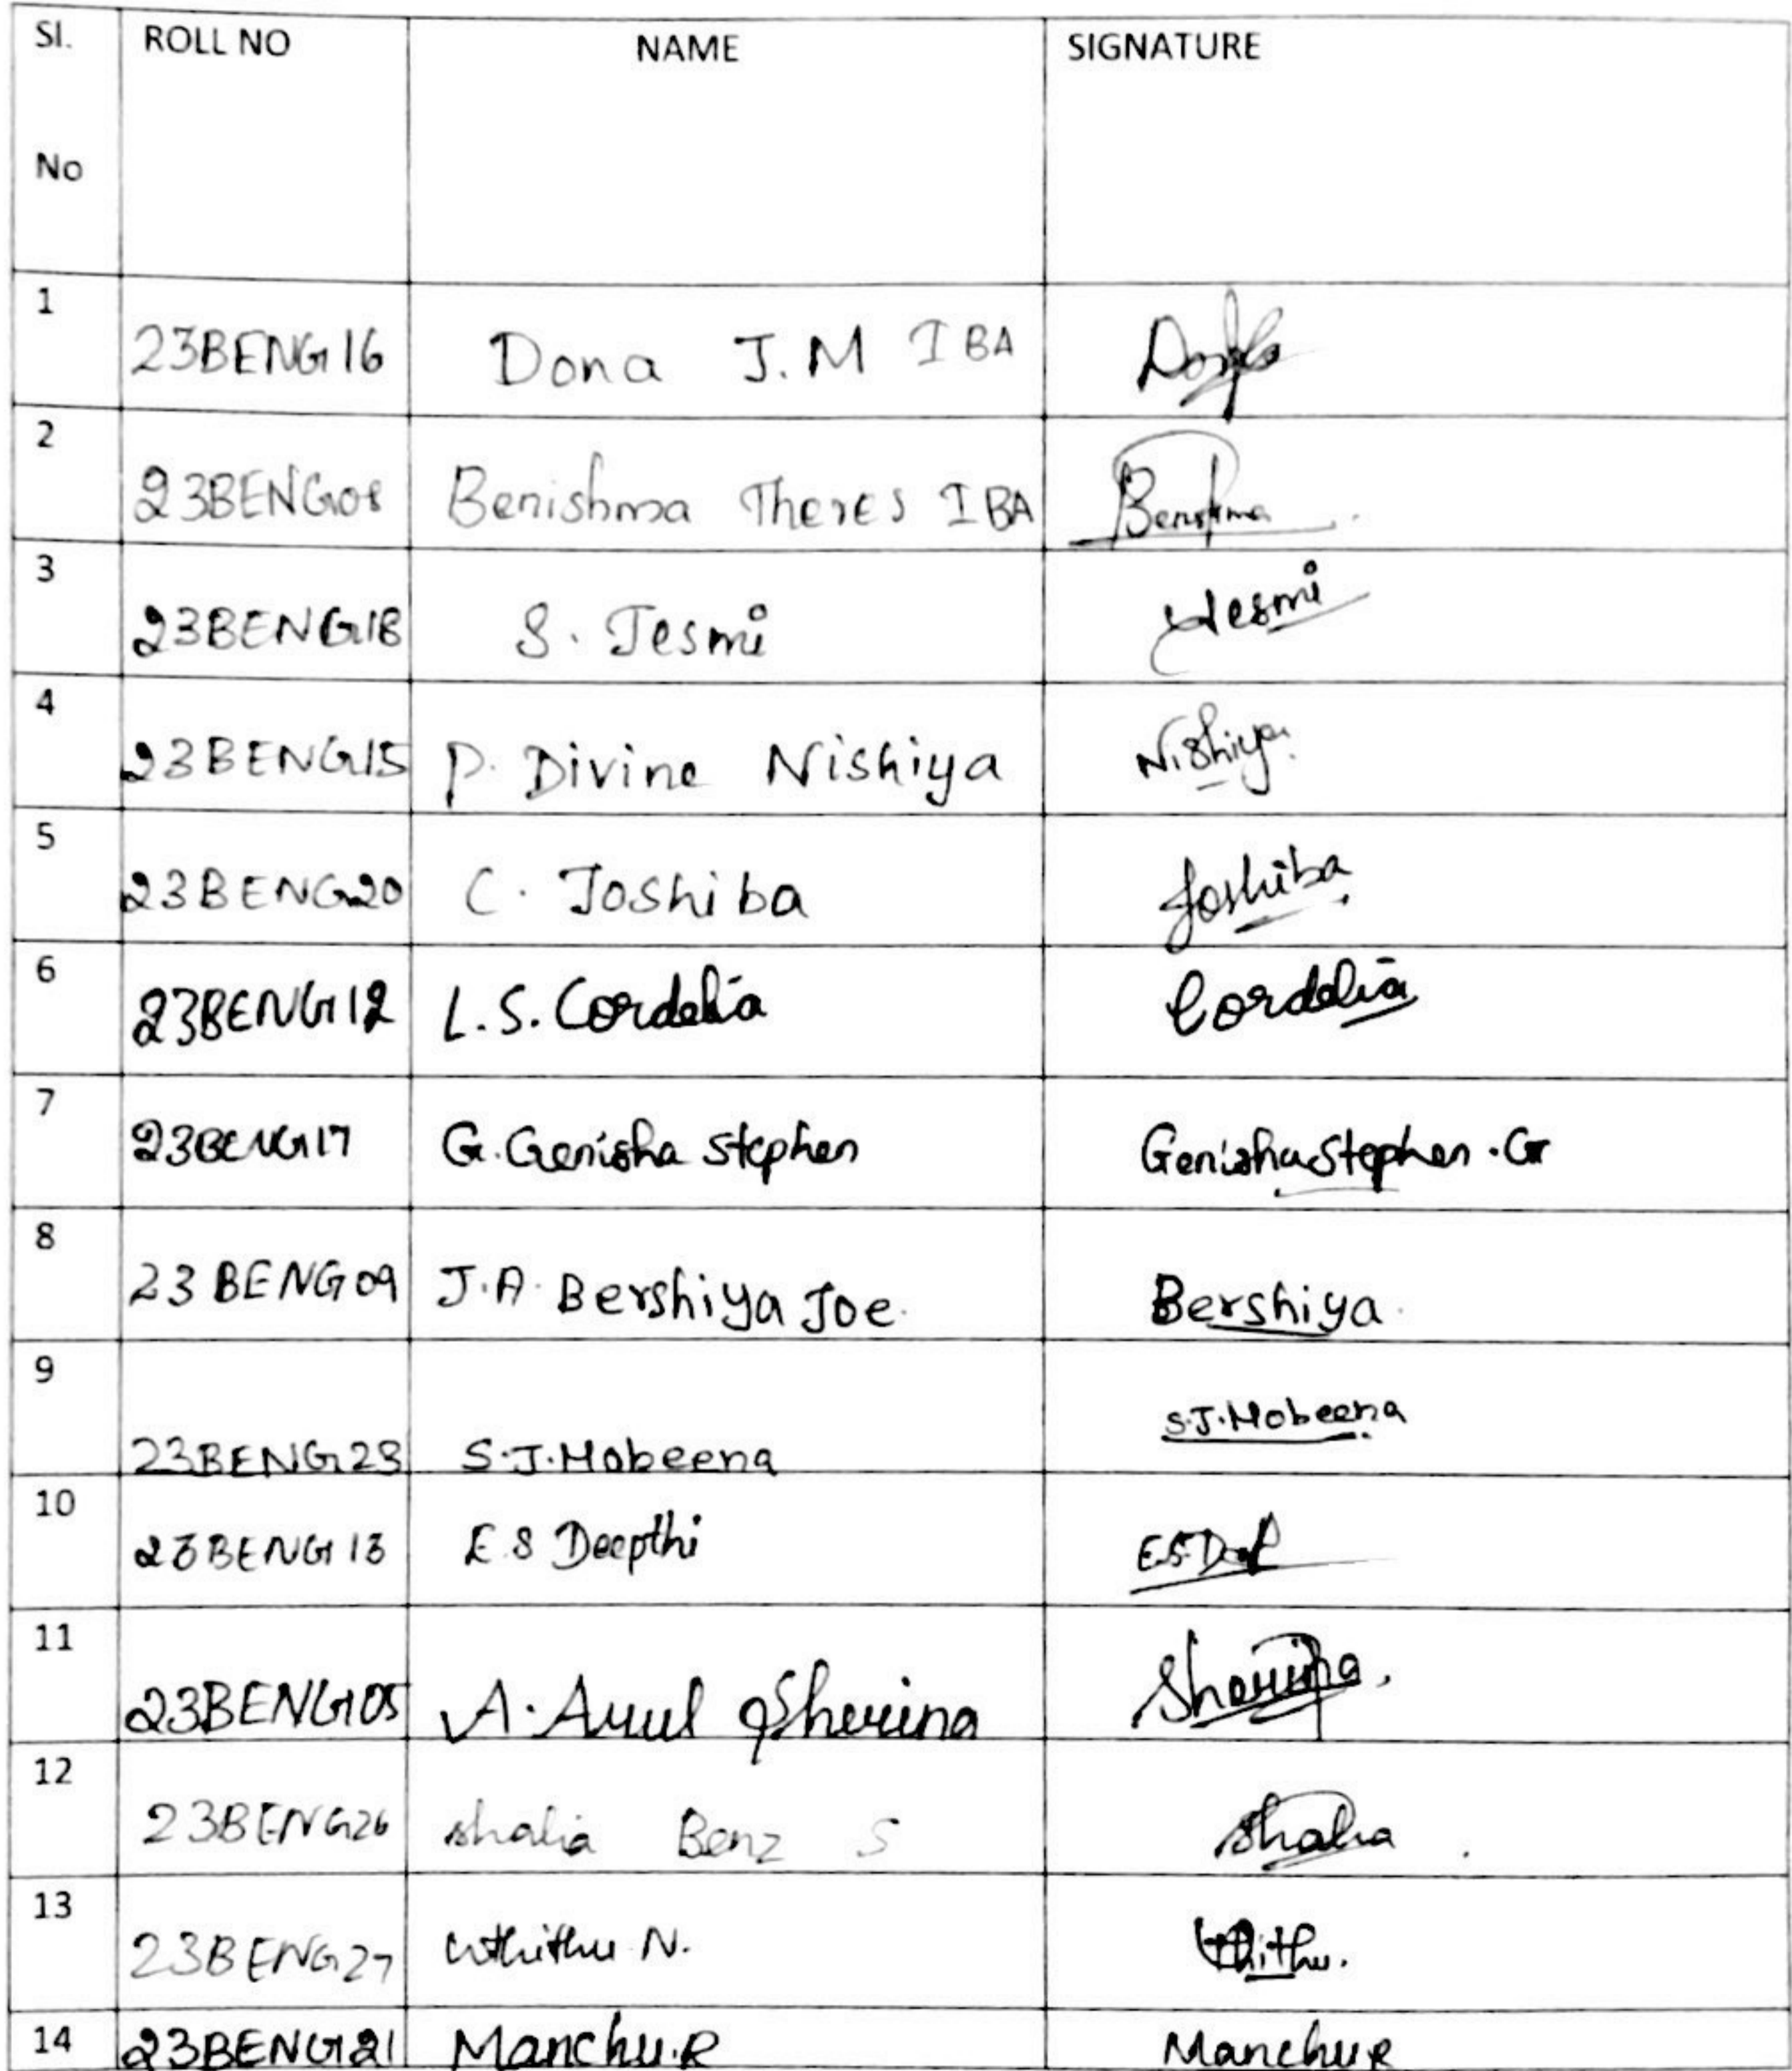 Sl. No ROLL NO NAME SIGNATURE
1 23BENG16 Dona J.M IBA Dona
2 23BENG08 Benishma Theres IBA Benishma
3 23BENG18 S. Jesmi Jesmi
4 23BENG15 P. Divine Nishiya Nishiya
5 23BENG20 C. Joshiba Joshiba
6 23BENG12 L.S. Cordelia Cordelia
7 23BENG17 G. Genisha Stephen Genisha Stephen . G
8 23BENG09 J.A. Bershiya Joe. Bershiya
9 23BENG23 S.J. Mobeena S.J. Mobeena
10 23BENG13 E.S Deepthi E.S.
11 23BENG05 A. Arul Sherina Sherina
12 23BENG26 Shalia Benz S Shalia
13 23BENG27 N.
14 23BENG21 Manchu.R Manchu R